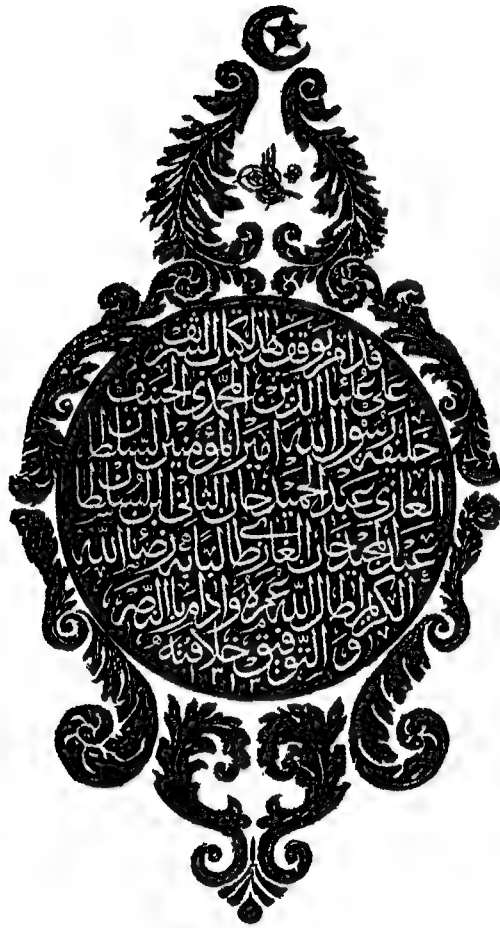 قد أمر بوقف هذا الكتاب الشريف
على علماء الدين المحمدي الحنيف
خليفة رسول الله أمير المؤمنين السلطان
الغازي عبد الحميد خان الثاني ابن السلطان
عبد المجيد خان الغازي طالباً به رضا الله
الكريم أطال الله عمره وأدام بالنصر
والتوفيق خلافته